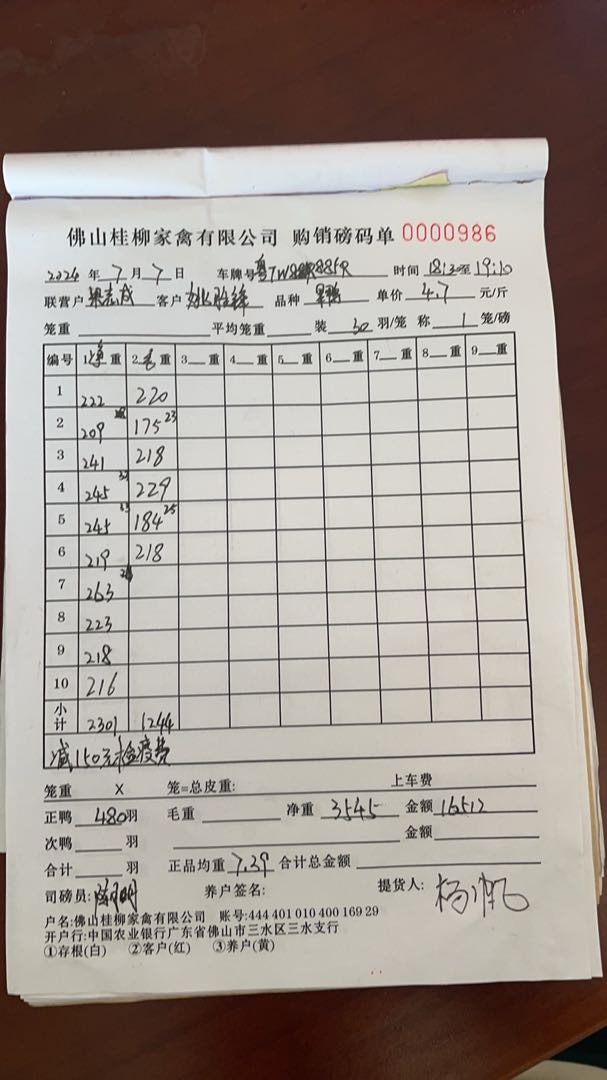 佛山桂柳家禽有限公司 购销磅码单 0000986
2024 年 7 月 7 日 车牌号 粤TW 885R 时间 18:30至19:10
联营户 客户 品种 单价 4.7 元/斤
笼重 平均笼重 装 30 羽/笼 称 1 笼/磅
编号 1净重 2毛重 3 重 4 重 5 重 6 重 7 重 8 重 9 重
1 222 220
2 209 175 23
3 241 218
4 245 229
5 245 184 25
6 219 218
7 263
8 223
9 218
10 216
小计 2301 1244
减150元检疫费
笼重 X 笼=总皮重: 上车费
正鸭 480羽 毛重 净重 3545 金额 16512
次鸭 羽 金额
合计 羽 正品均重 7.39 合计总金额
司磅员: 养户签名: 提货人: 杨帆
户名:佛山桂柳家禽有限公司 账号:444 401 010 400 169 29
开户行:中国农业银行广东省佛山市三水区三水支行
①存根(白) ②客户(红) ③养户(黄)